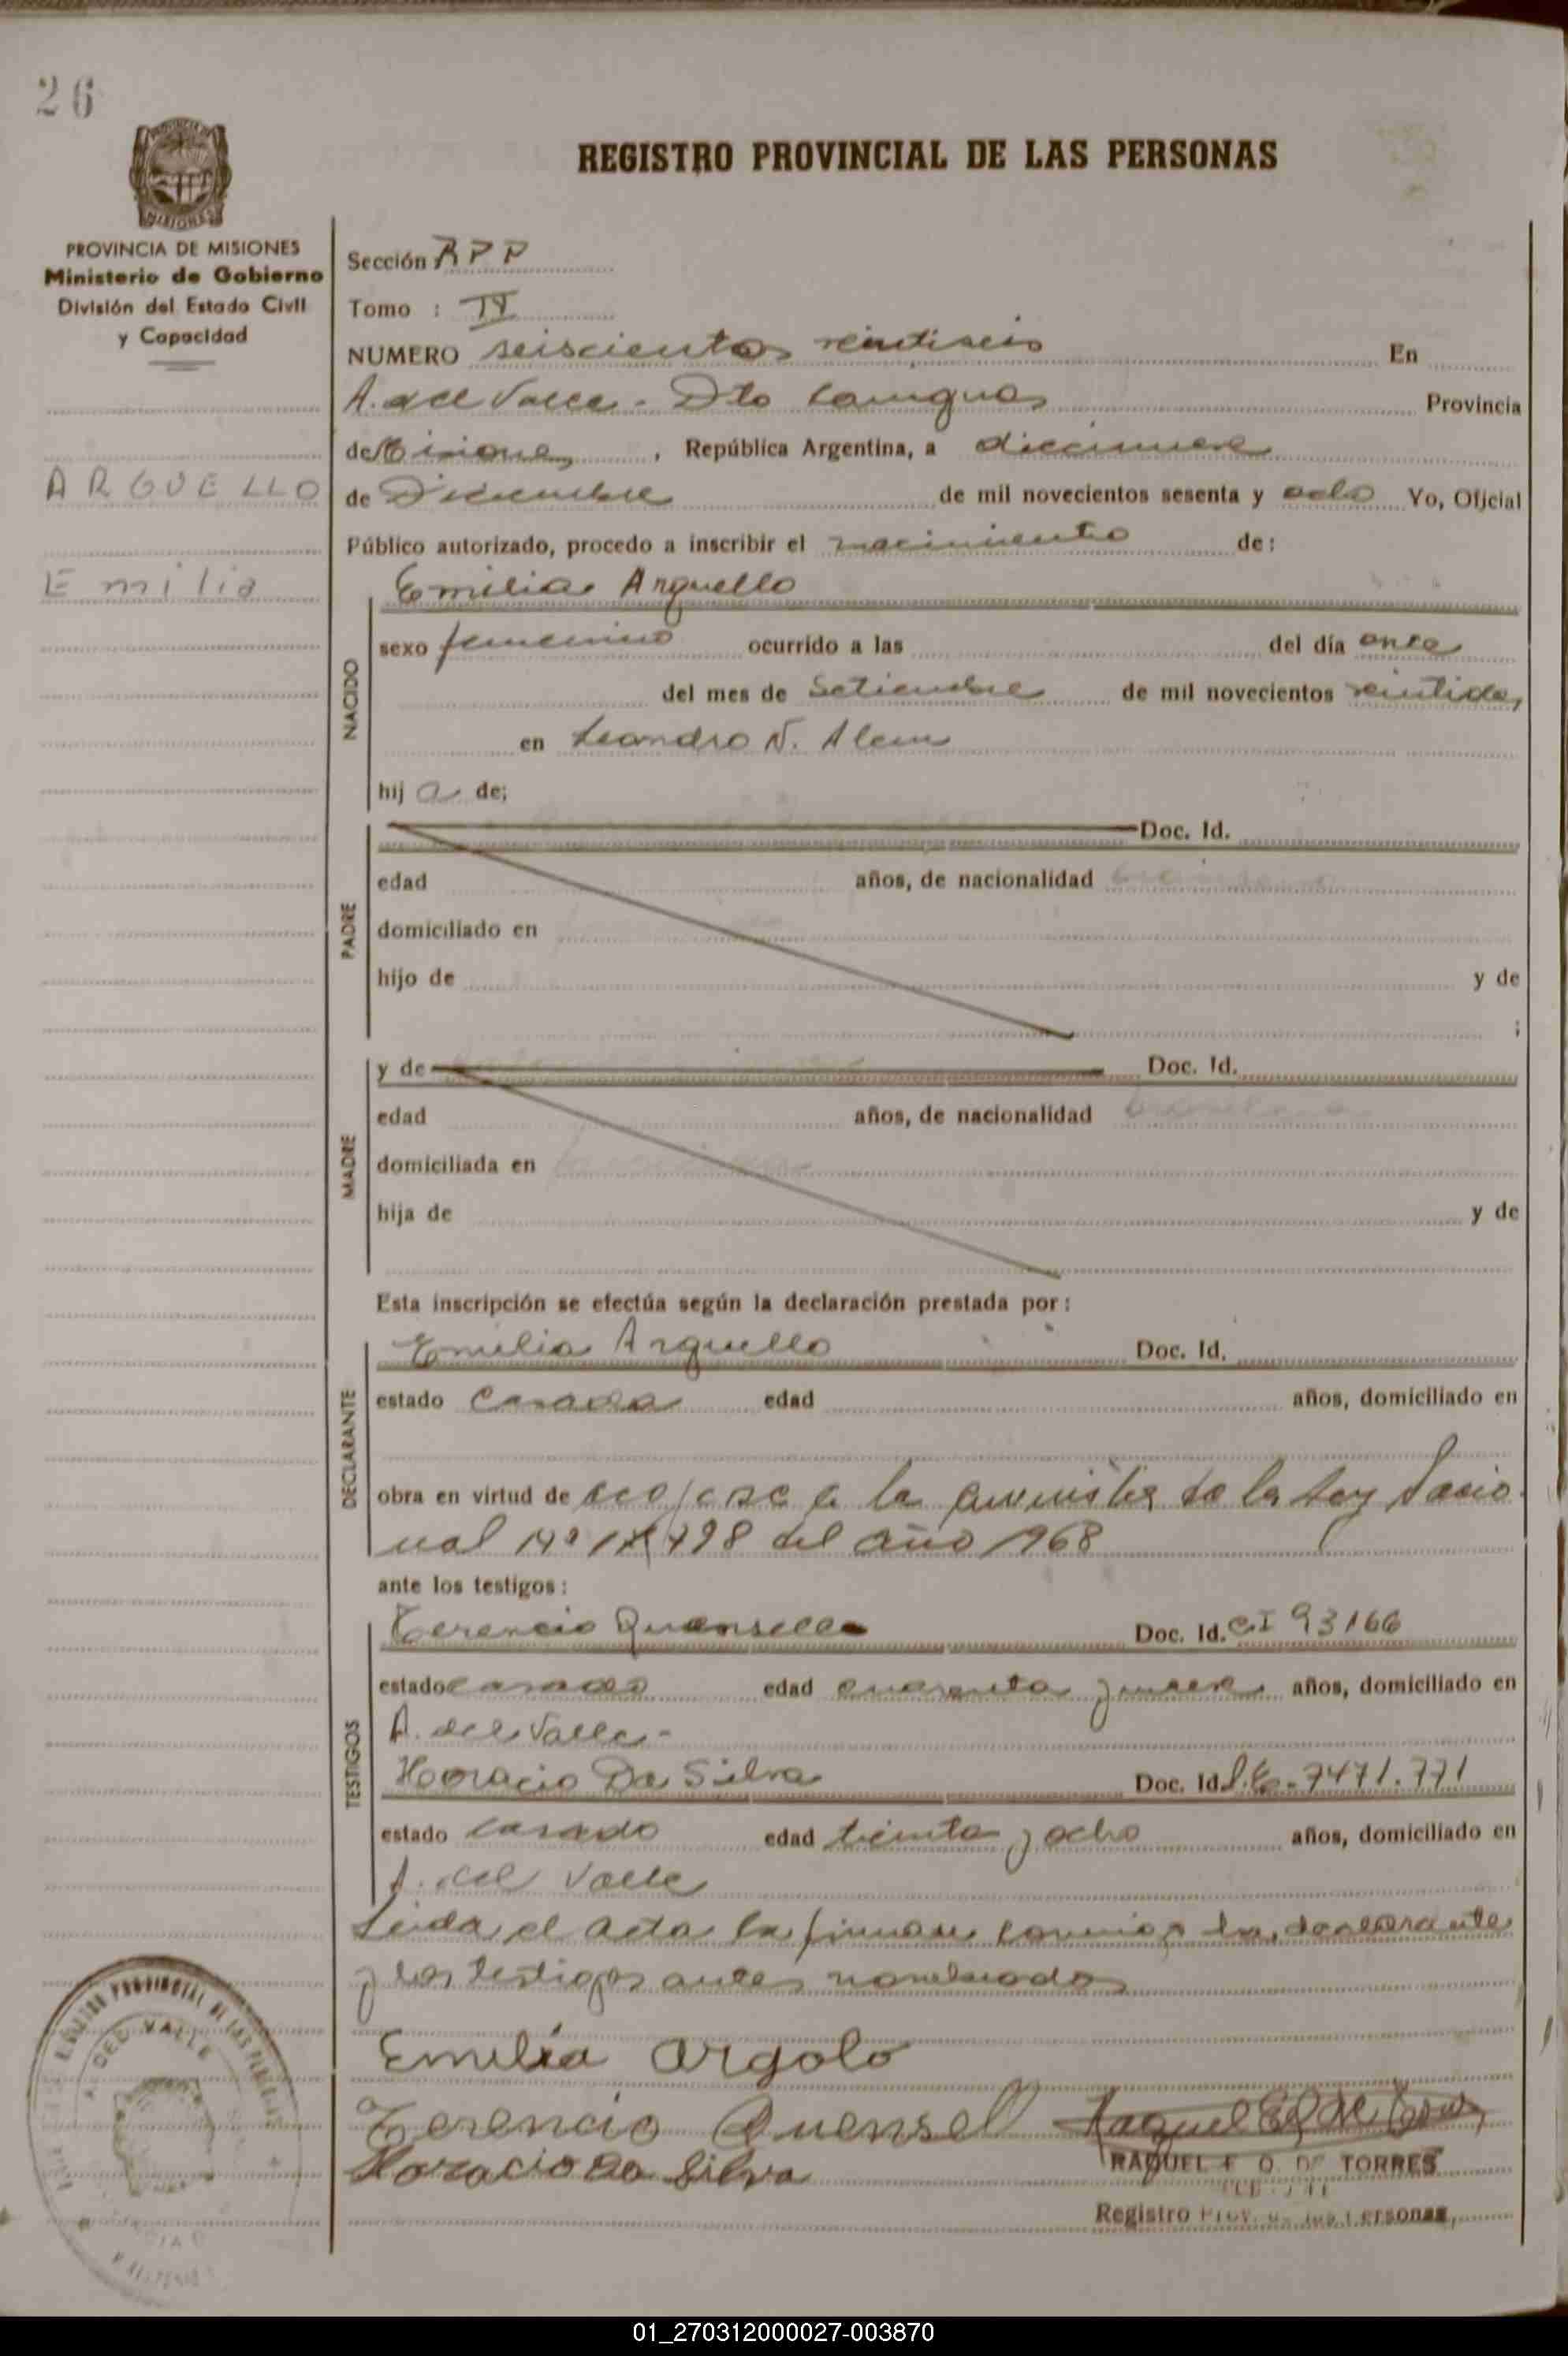 26
REGISTRO PROVINCIAL DE LAS PERSONAS
PROVINCIA DE MISIONES
Ministerio de Gobierno
División del Estado Civil
y Capacidad
ARGUELLO
Emilia
Sección RPP
Tomo :
NUMERO seiscientos veintiseis En
A. del Valle - Dto Cainguas Provincia
de Misiones, República Argentina, a diecinueve
de Diciembre de mil novecientos sesenta y ocho Yo, Oficial
Público autorizado, procedo a inscribir el nacimiento de:
NACIDO
Emilia Arguello
sexo femenino ocurrido a las del día once
del mes de Setiembre de mil novecientos veintidos
en Leandro N. Alem
hij a de;
PADRE
Doc. Id.
edad años, de nacionalidad
domiciliado en
hijo de y de
;
MADRE
y de Doc. Id.
edad años, de nacionalidad
domiciliada en
hija de y de
Esta inscripción se efectúa según la declaración prestada por:
DECLARANTE
Emilia Arguello Doc. Id.
estado Casada edad años, domiciliado en
obra en virtud de acojerse a la amnistia de la Ley Nacio
nal Nº 498 del año 1968
ante los testigos:
TESTIGOS
Terencio Quensell Doc. Id. CI 93166
estado casado edad cuarenta y nueve años, domiciliado en
A. del Valle-
Horacio Da Silva Doc. Id. L.E. 7471.771
estado casado edad treinta y ocho años, domiciliado en
A. del Valle
Leida el acta la firman conmigo la declarante
y los testigos antes nombrados
Emilia Argolo
Terencio Quensell
Horacio Da Silva
RAQUEL E. O. DE TORRES
Registro Prov. de las Personas
REGISTRO PROVINCIAL DE LAS PERSONAS
A. DEL VALLE
01_270312000027-003870